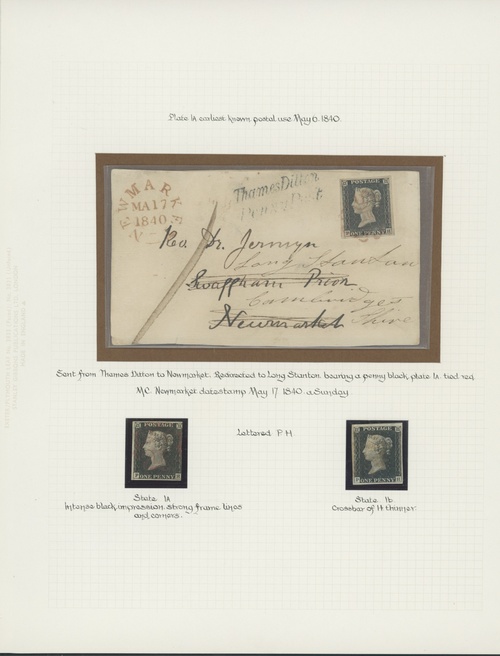 Plate 1A earliest known postal use May 6. 1840.
NEWMARKET
MA 17
1840
Thames Ditton
Penny Post
POSTAGE
ONE PENNY
Rev Dr. Jermyn
Long Stanton
Swaffham Prior
Cambridge
Newmarket
Shire
Sent from Thames Ditton to Newmarket. Redirected to Long Stanton. bearing a penny black, plate 1A tied red
M.C. Newmarket datestamp May 17 1840 a Sunday
Lettered P H
POSTAGE
ONE PENNY
POSTAGE
ONE PENNY
State 1A
Intense black, impression. strong frame lines
and corners.
State 1b
Crossbar of H thinner.